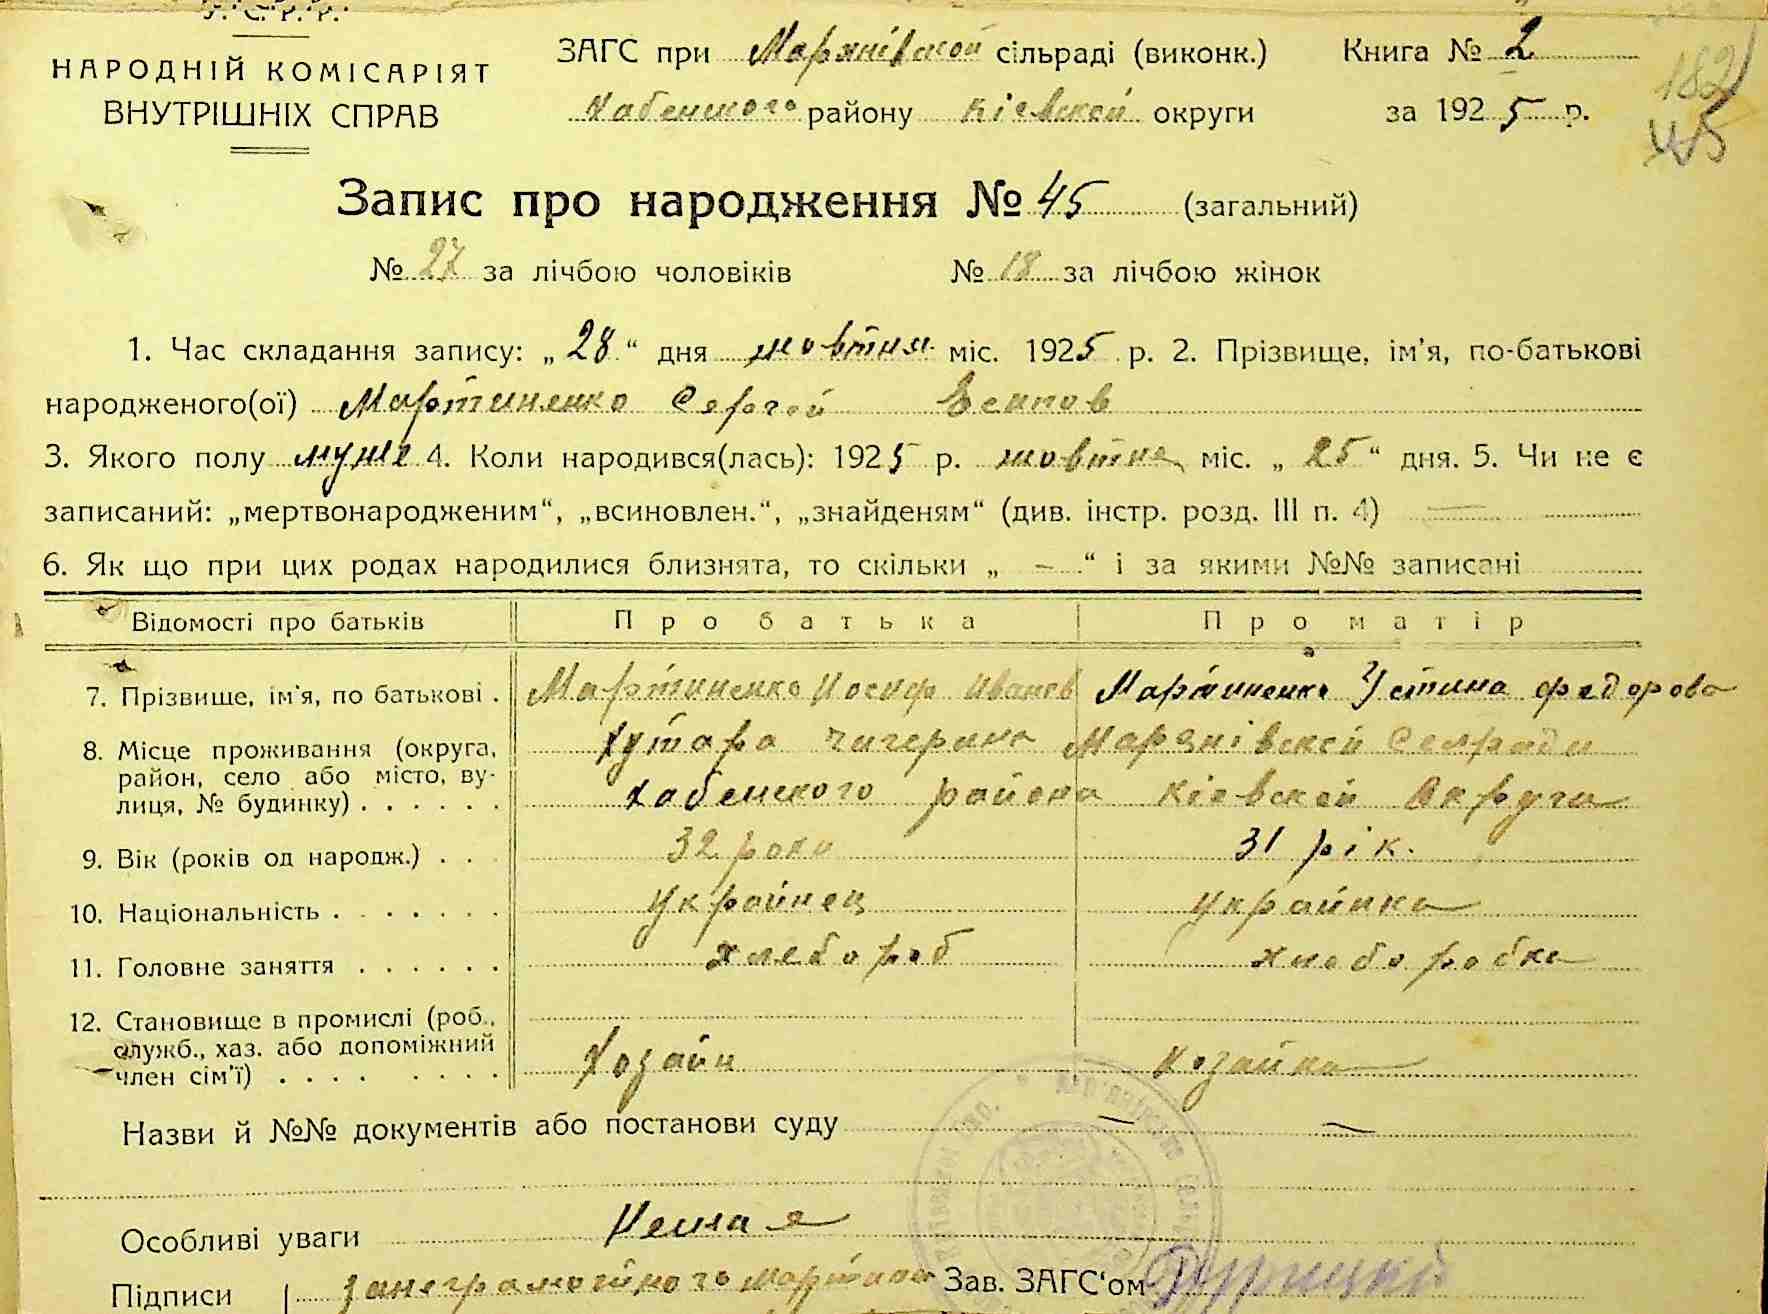 У. С. Р. Р.
НАРОДНІЙ КОМІСАРІЯТ
ВНУТРІШНІХ СПРАВ
ЗАГС при Марянівской сільраді (виконк.) Книга № 2
Хабенского району Кіевской округи за 1925 р.
182
45
Запис про народження № 45 (загальний)
№ 27 за лічбою чоловіків № 18 за лічбою жінок
1. Час складання запису: „28“ дня жовтня міс. 1925 р. 2. Прізвище, ім'я, по-батькові
народженого(ої) Мартиненко Сергей Есипов
3. Якого полу муже 4. Коли народився(лась): 1925 р. жовтня міс. „25“ дня. 5. Чи не є
записаний: „мертвонародженим“, „всиновлен.“, „знайденям“ (див. інстр. розд. III п. 4) —
6. Як що при цих родах народилися близнята, то скільки „ – “ і за якими №№ записані
Відомості про батьків Про батька Про матір
7. Прізвище, ім'я, по батькові . Мартиненко Иосиф Иванов Мартиненко Устина Федорова
8. Місце проживання (округа, район, село або місто, вулиця, № будинку) . . . . . . Хутара Чигерина Марянівскей Селради
Хабенского района Кіевскей Округи
9. Вік (років од народж.) . . . 32 роки 31 рік.
10. Національність . . . . . . . Украйнец Украйнка
11. Головне заняття . . . . . . хлебороб хлеборобка
12. Становище в промислі (роб., служб., хаз. або допоміжний член сім'ї) . . . . . . . . Хозайн Хозайка
Назви й №№ документів або постанови суду — —
Особливі уваги Немае
Підписи занеграмотного Мартинен Зав. ЗАГС'ом